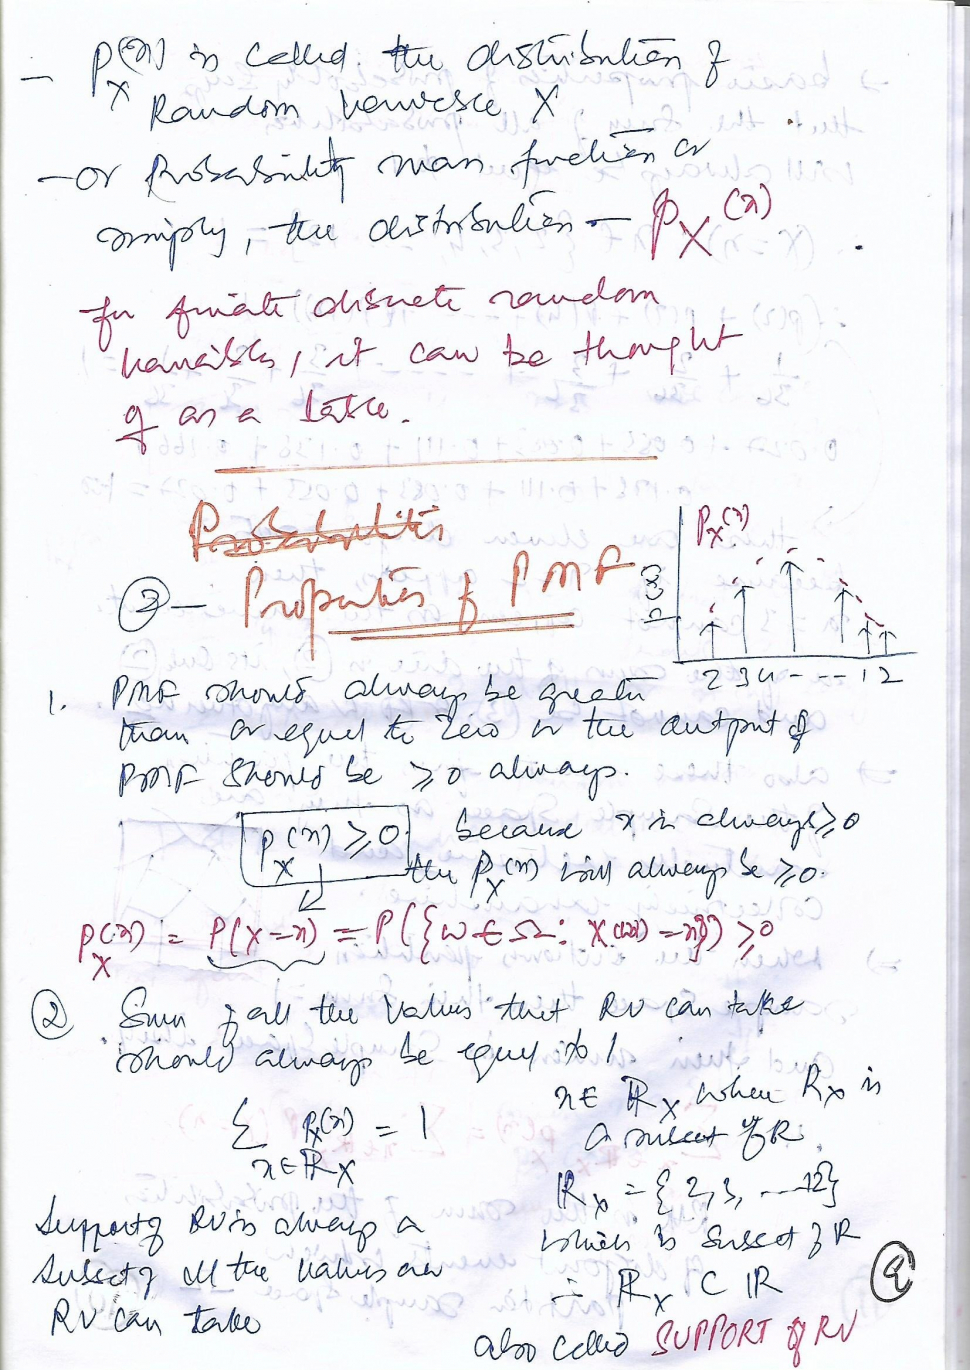 - P_X(x) is called the distribution of
Random Variable X
- or Probability mass function or
simply, the distribution - p_X(x)
- for finite discrete random
variables, it can be thought
of as a table.
Probabilities
③ - Properties of PMF
P_X(x)
P(X=x)
2 3 4 - - - - 12
1. PMF should always be greater
than or equal to zero or the output of
PMF should be ≥ 0 always.
p_X(x) ≥ 0 because x is always ≥ 0
the P_X(x) will always be ≥ 0.
p_X(x) = P(X=x) = P({ω ∈ Ω : X(ω) = x}) ≥ 0
② Sum of all the values that RV can take
should always be equal to 1
Σ_{x ∈ R_X} P_X(x) = 1
x ∈ R_X where R_X is
a subset of R.
R_X = {2, 3, .... 12}
which is subset of R
∴ R_X ⊂ R
also called SUPPORT of RV
Support of RV is always a
subset of all the values
RV can take